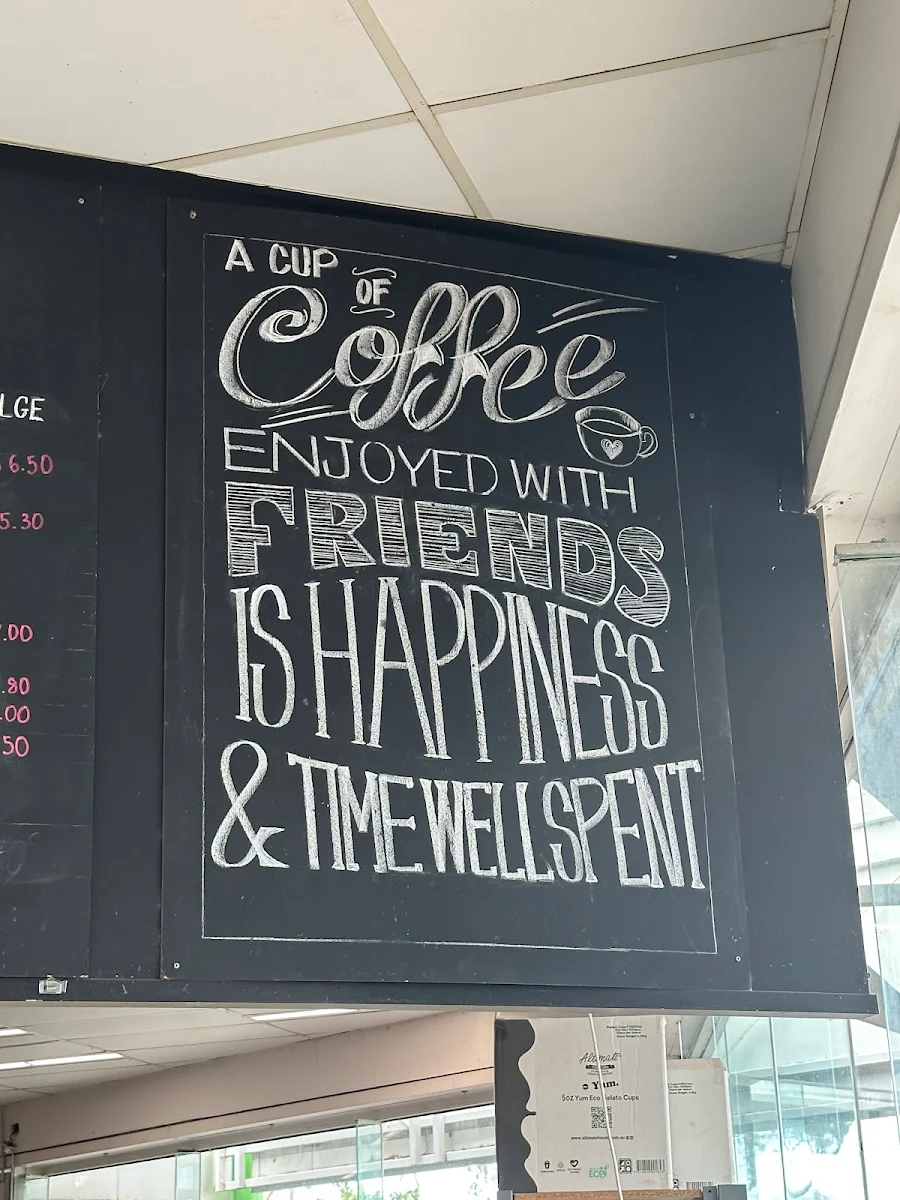 A CUP
OF
Coffee
ENJOYED WITH
FRIENDS
IS HAPPINESS
& TIME WELL SPENT
LGE
6.50
5.30
.00
.80
.00
50
Altimate
Yum.
5oz Yum Eco Gelato Cups
ECO